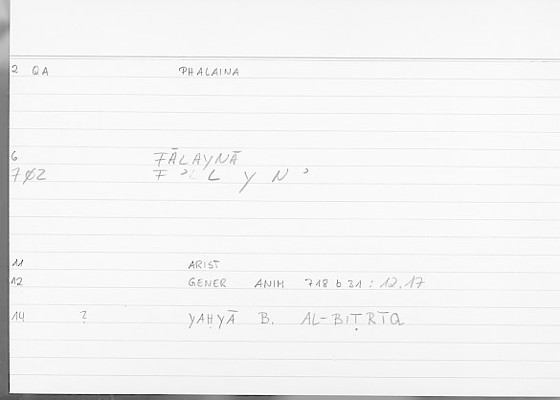 2 QA PHALAINA
6 FĀLAYNĀ
702 F ʾ L L Y N ʾ
11 ARIST
12 GENER ANIM 718 b 31 : 12.17
14 ? YAḤYĀ B. AL-BIṬRĪQ